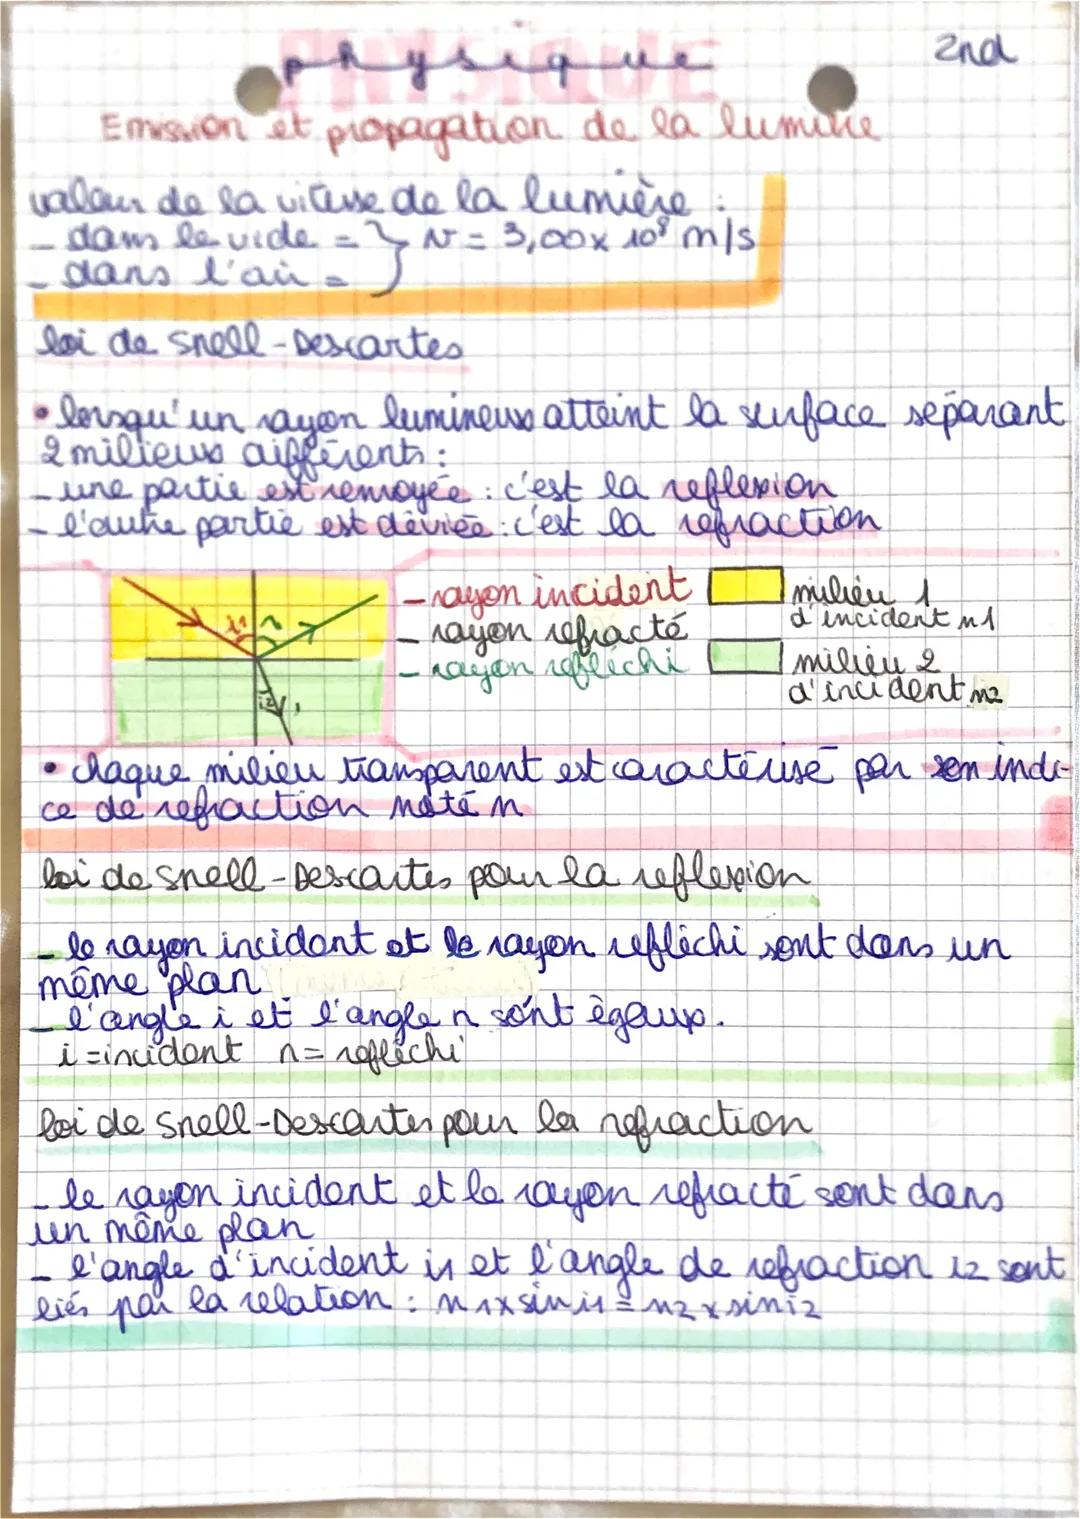 physique
2nd
Emission et propagation de la lumière
valeur de la vitesse de la lumière :
- dans le vide = } v = 3,00x 10⁸ m/s
- dans l'air =
loi de Snell-Descartes
• lorsqu'un rayon lumineux atteint la surface séparant
2 milieux différents :
- une partie est renvoyée : c'est la reflexion
- l'autre partie est déviée : c'est la refraction
- rayon incident
- rayon refracté
- rayon refléchi
milieu 1
d'incident n1
milieu 2
d'incident n2
i1 r
i2
• chaque milieu transparent est caractérisé par son indi-
ce de refraction noté n
loi de Snell-Descartes pour la reflexion
- le rayon incident et le rayon refléchi sont dans un
même plan
- l'angle i et l'angle r sont égaux.
i = incident r = refléchi
loi de Snell-Descartes pour la refraction
- le rayon incident et le rayon refracté sont dans
un même plan
- l'angle d'incident i1 et l'angle de refraction i2 sont
liés par la relation : n1 x sin i1 = n2 x sin i2